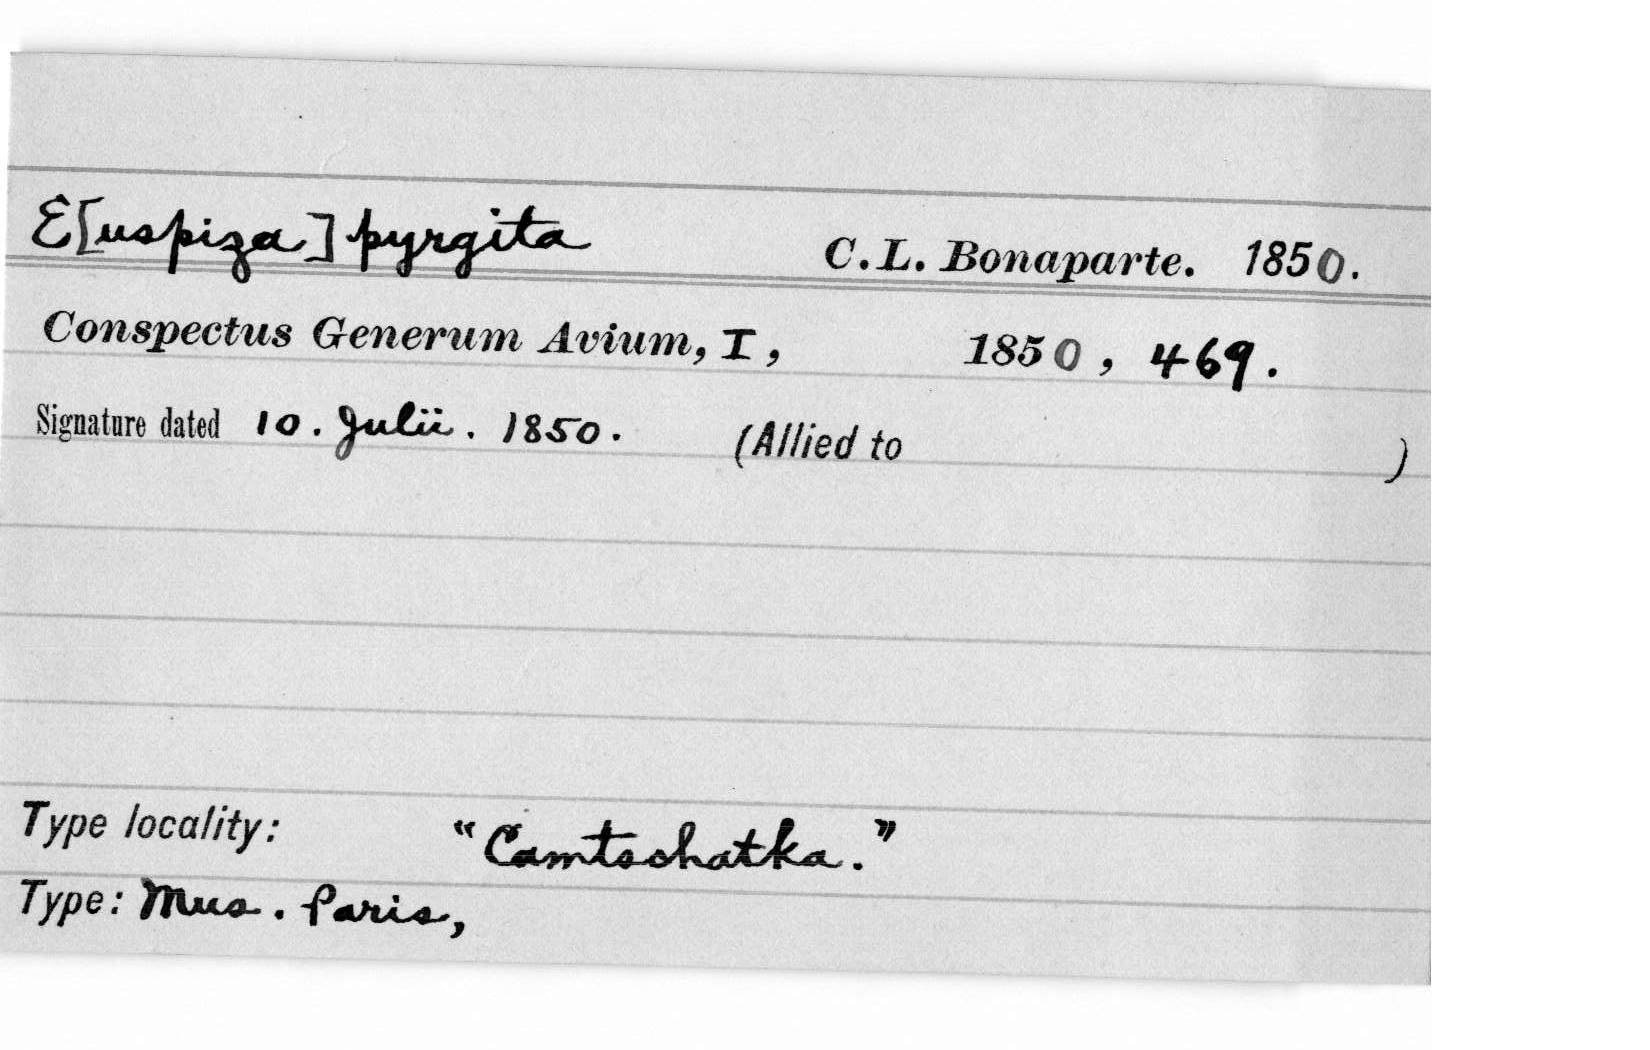 E[uspiza] pyrgita C. L. Bonaparte. 1850.
Conspectus Generum Avium, I, 1850, 469.
Signature dated 10. Julii. 1850. (Allied to )
Type locality: "Camtschatka."
Type: Mus. Paris,